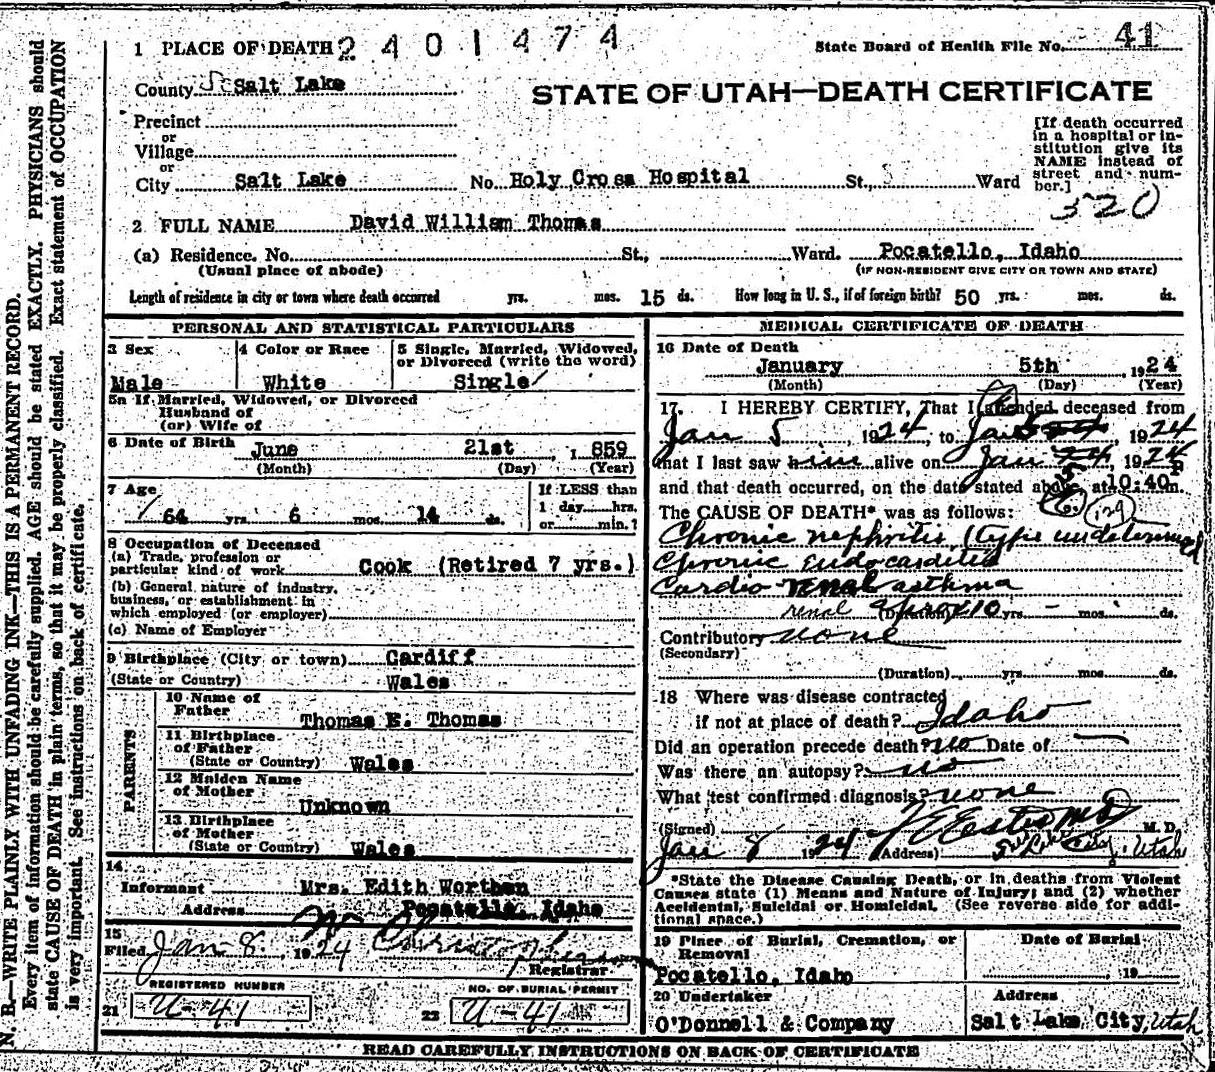 N. B.—WRITE PLAINLY WITH UNFADING INK—THIS IS A PERMANENT RECORD.
Every item of information should be carefully supplied. AGE should be stated EXACTLY. PHYSICIANS should
state CAUSE OF DEATH in plain terms, so that it may be properly classified. Exact statement of OCCUPATION
is very important. See instructions on back of certificate.
1 PLACE OF DEATH 2401474
State Board of Health File No. 41
County Salt Lake
STATE OF UTAH—DEATH CERTIFICATE
Precinct
or
Village
or
City Salt Lake No. Holy Cross Hospital St., Ward
[If death occurred
in a hospital or in-
stitution give its
NAME instead of
street and num-
ber.]
520
2 FULL NAME David William Thomas
(a) Residence. No. St., Ward. Pocatello, Idaho
(Usual place of abode) (IF NON-RESIDENT GIVE CITY OR TOWN AND STATE)
Length of residence in city or town where death occurred yrs. mos. 15 ds. How long in U. S., if of foreign birth? 50 yrs. mos. ds.
PERSONAL AND STATISTICAL PARTICULARS
3 Sex
Male
4 Color or Race
White
5 Single, Married, Widowed,
or Divorced (write the word)
Single
5a If Married, Widowed, or Divorced
Husband of
(or) Wife of
6 Date of Birth June 21st, 1859
(Month) (Day) (Year)
7 Age
64 yrs. 6 mos. 14 ds.
If LESS than
1 day hrs.
or min.?
8 Occupation of Deceased
(a) Trade, profession or
particular kind of work Cook (Retired 7 yrs.)
(b) General nature of industry,
business, or establishment in
which employed (or employer)
(c) Name of Employer
9 Birthplace (City or town) Cardiff
(State or Country) Wales
PARENTS
10 Name of
Father Thomas E. Thomas
11 Birthplace
of Father
(State or Country) Wales
12 Maiden Name
of Mother
Unknown
13 Birthplace
of Mother
(State or Country) Wales
14
Informant Mrs. Edith Worthen
Address Pocatello, Idaho
15
Filed Jan 8, 1924
Registrar
REGISTERED NUMBER
21 U-41
NO. OF BURIAL PERMIT
22 U-41
MEDICAL CERTIFICATE OF DEATH
16 Date of Death
January 5th, 1924
(Month) (Day) (Year)
17. I HEREBY CERTIFY, That I attended deceased from
Jan 5, 1924, to Jan 5, 1924
that I last saw him alive on Jan 5, 1924
and that death occurred, on the date stated above, at 10:40 P m.
The CAUSE OF DEATH* was as follows:
129
Chronic nephritis (type undetermined
Chronic Endocarditis
Cardio renal asthma
renal (Duration) approx 10 yrs. - mos. ds.
Contributory none
(Secondary)
(Duration) yrs. mos. ds.
18 Where was disease contracted
if not at place of death? Idaho
Did an operation precede death? no Date of —
Was there an autopsy? no
What test confirmed diagnosis? none
(Signed) M. D.
Jan 8 1924 (Address) Salt Lake City, Utah
*State the Disease Causing Death, or in deaths from Violent
Causes state (1) Means and Nature of Injury; and (2) whether
Accidental, Suicidal or Homicidal. (See reverse side for addi-
tional space.)
19 Place of Burial, Cremation, or
Removal
Pocatello, Idaho
Date of Burial
, 19
20 Undertaker
O'Donnell & Company
Address
Salt Lake City, Utah
READ CAREFULLY INSTRUCTIONS ON BACK OF CERTIFICATE